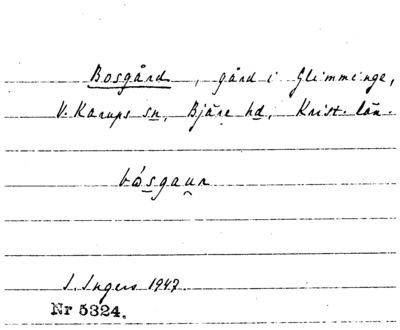 Bosgård, gård i Glimminge,
V. Karups sn, Bjäre hd, Krist. län.
bósgaun
I. Ingers 1947.
Nr 5324.